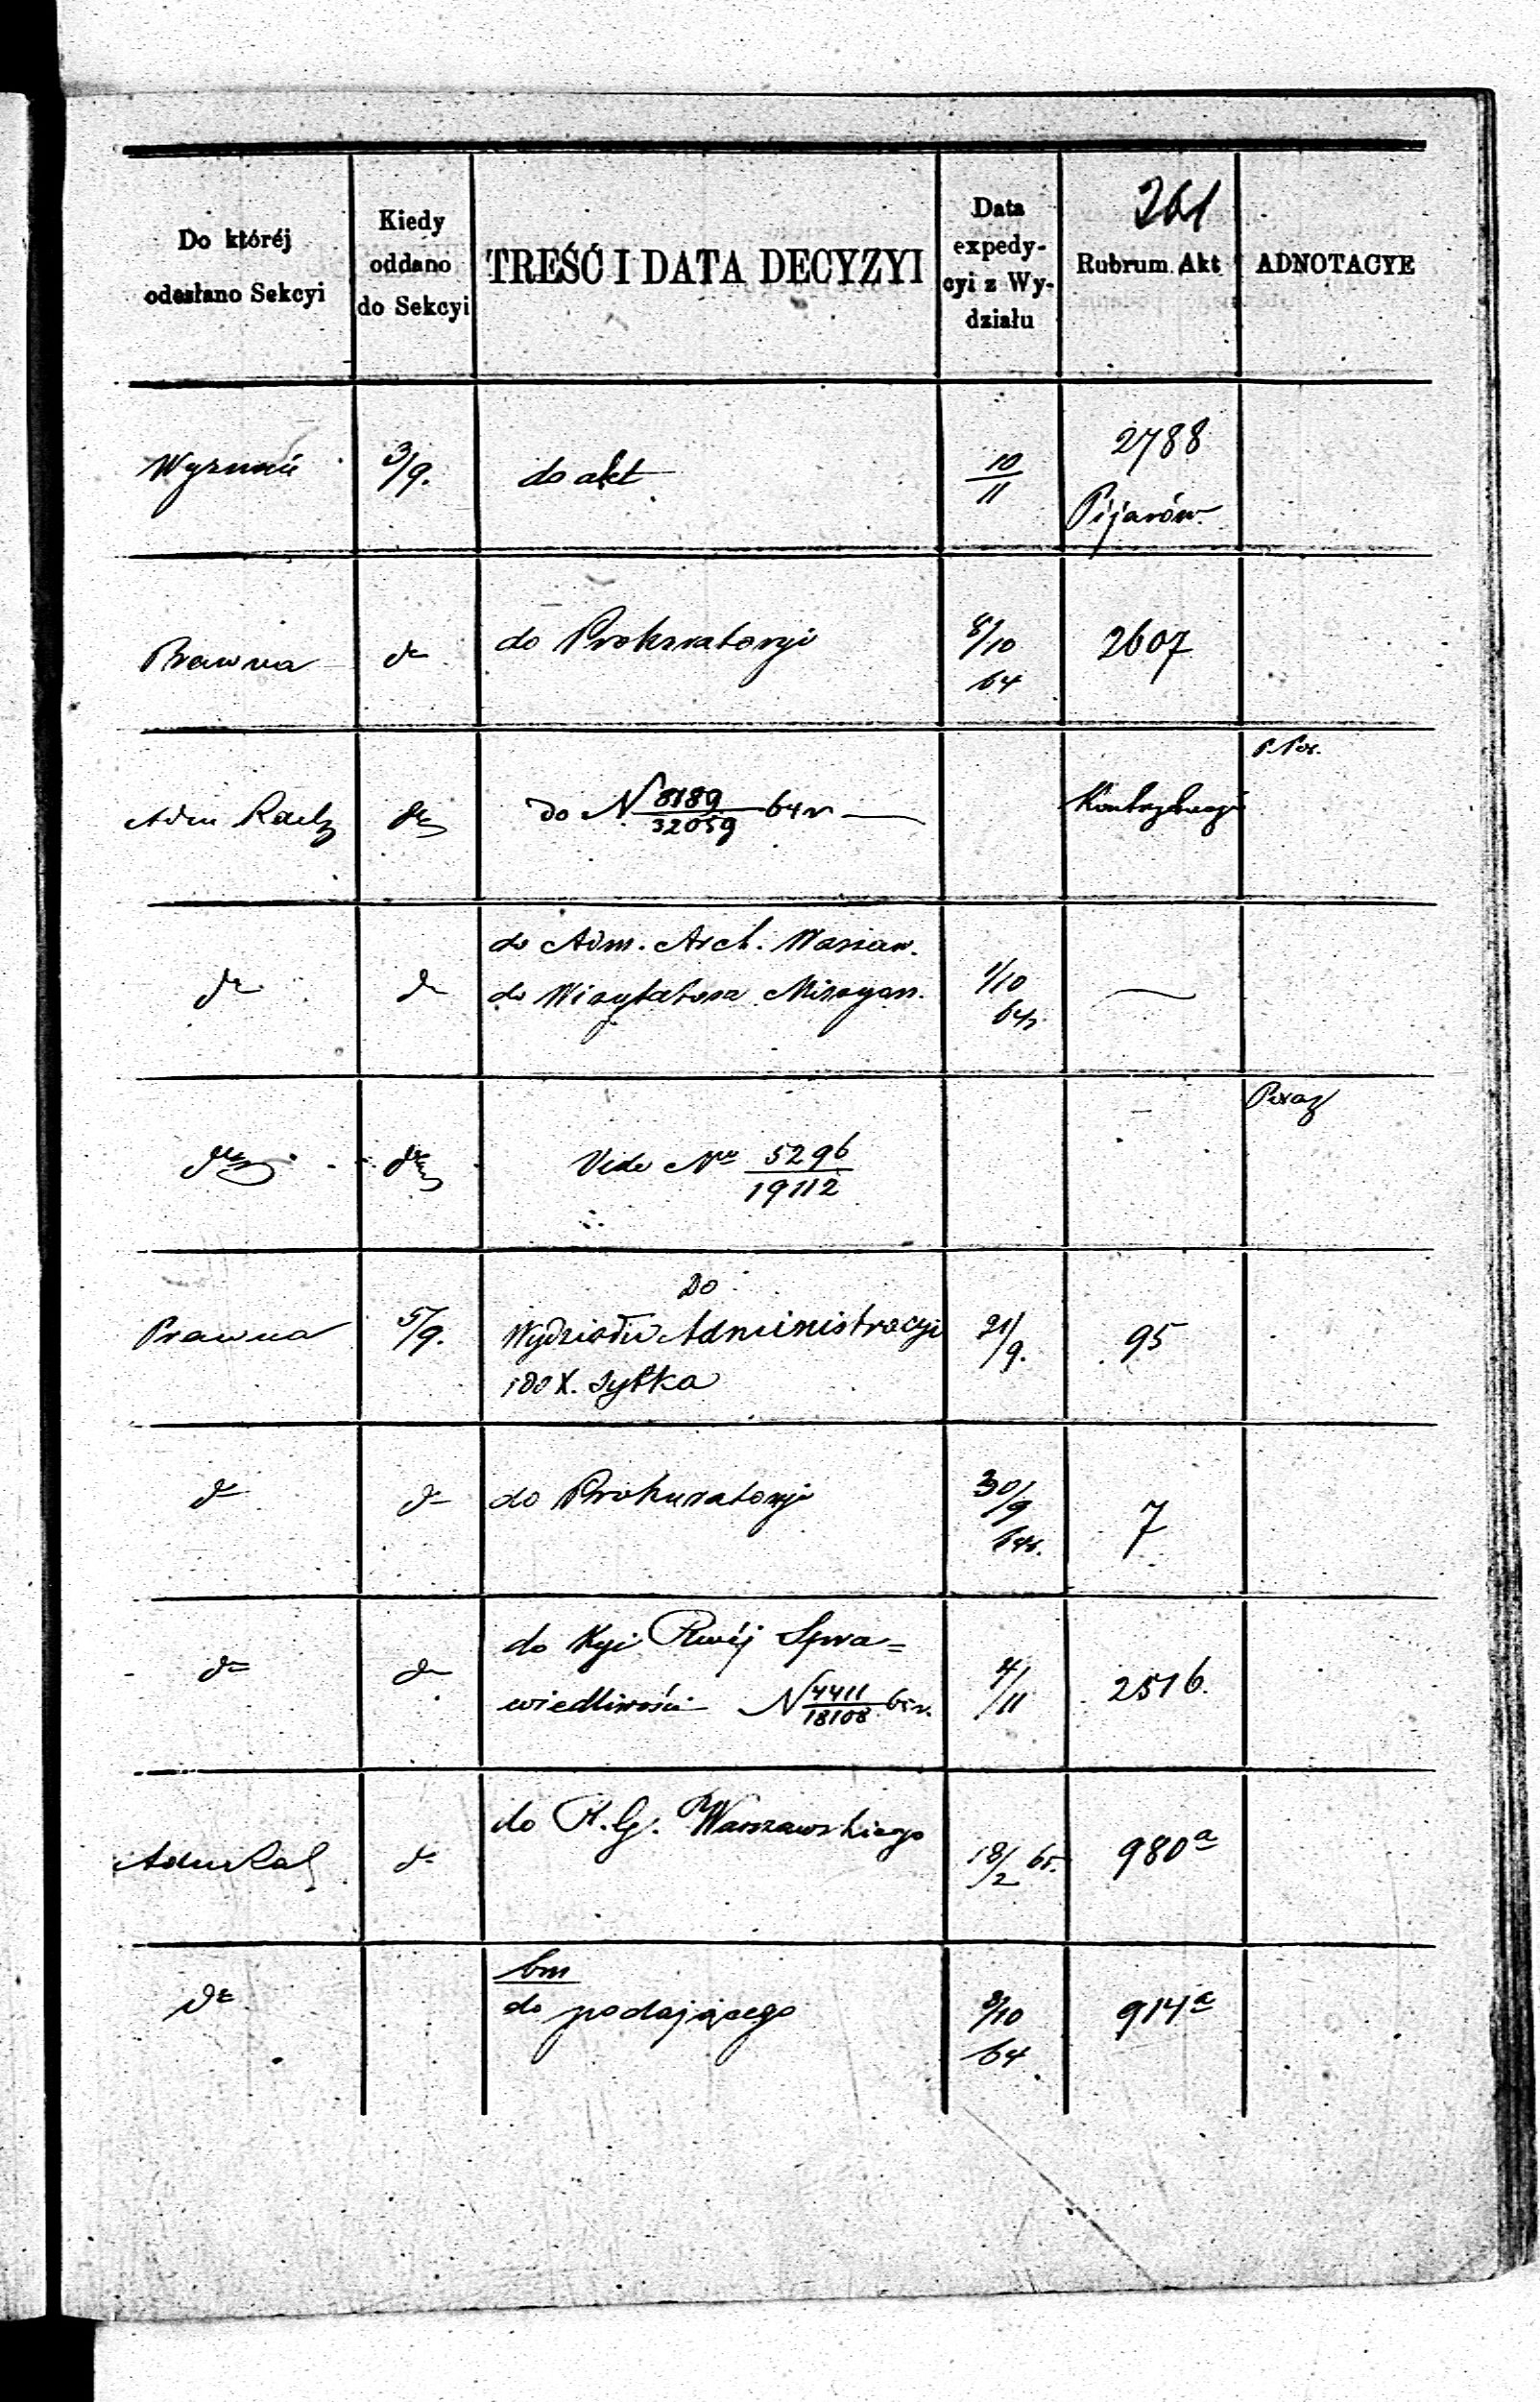 261
Do któréj
odesłano Sekcyi
Kiedy
oddano
do Sekcyi
TREŚĆ I DATA DECYZYI
Data
expedy-
cyi z Wy-
działu
Rubrum Akt
ADNOTACYE
3/9.
do akt
10/11
2788
Pijarów.
Prawna
do
do Prokuratoryi
8/10
64
2607
Adm
do N 8189/32059 64 r
do
do
do Adm. Arch. Warszaw.
do Wizytatora Missyon.
1/10
64r.
do
do
Vide No 5296/19112
Prawna
5/9.
Do
Wydziału Administracyi
i do X. Sytka
21/9.
95
do
do
do Prokuratoryi
30/9
64r.
7
do
do
do Kyi Rwéj Spra=
wiedliwości N 4411/18108 65 r.
4/11
2516.
do
do R. G. Warszawskiego
18/2 65.
980a
do
bm
do podającego
8/10
64
914a